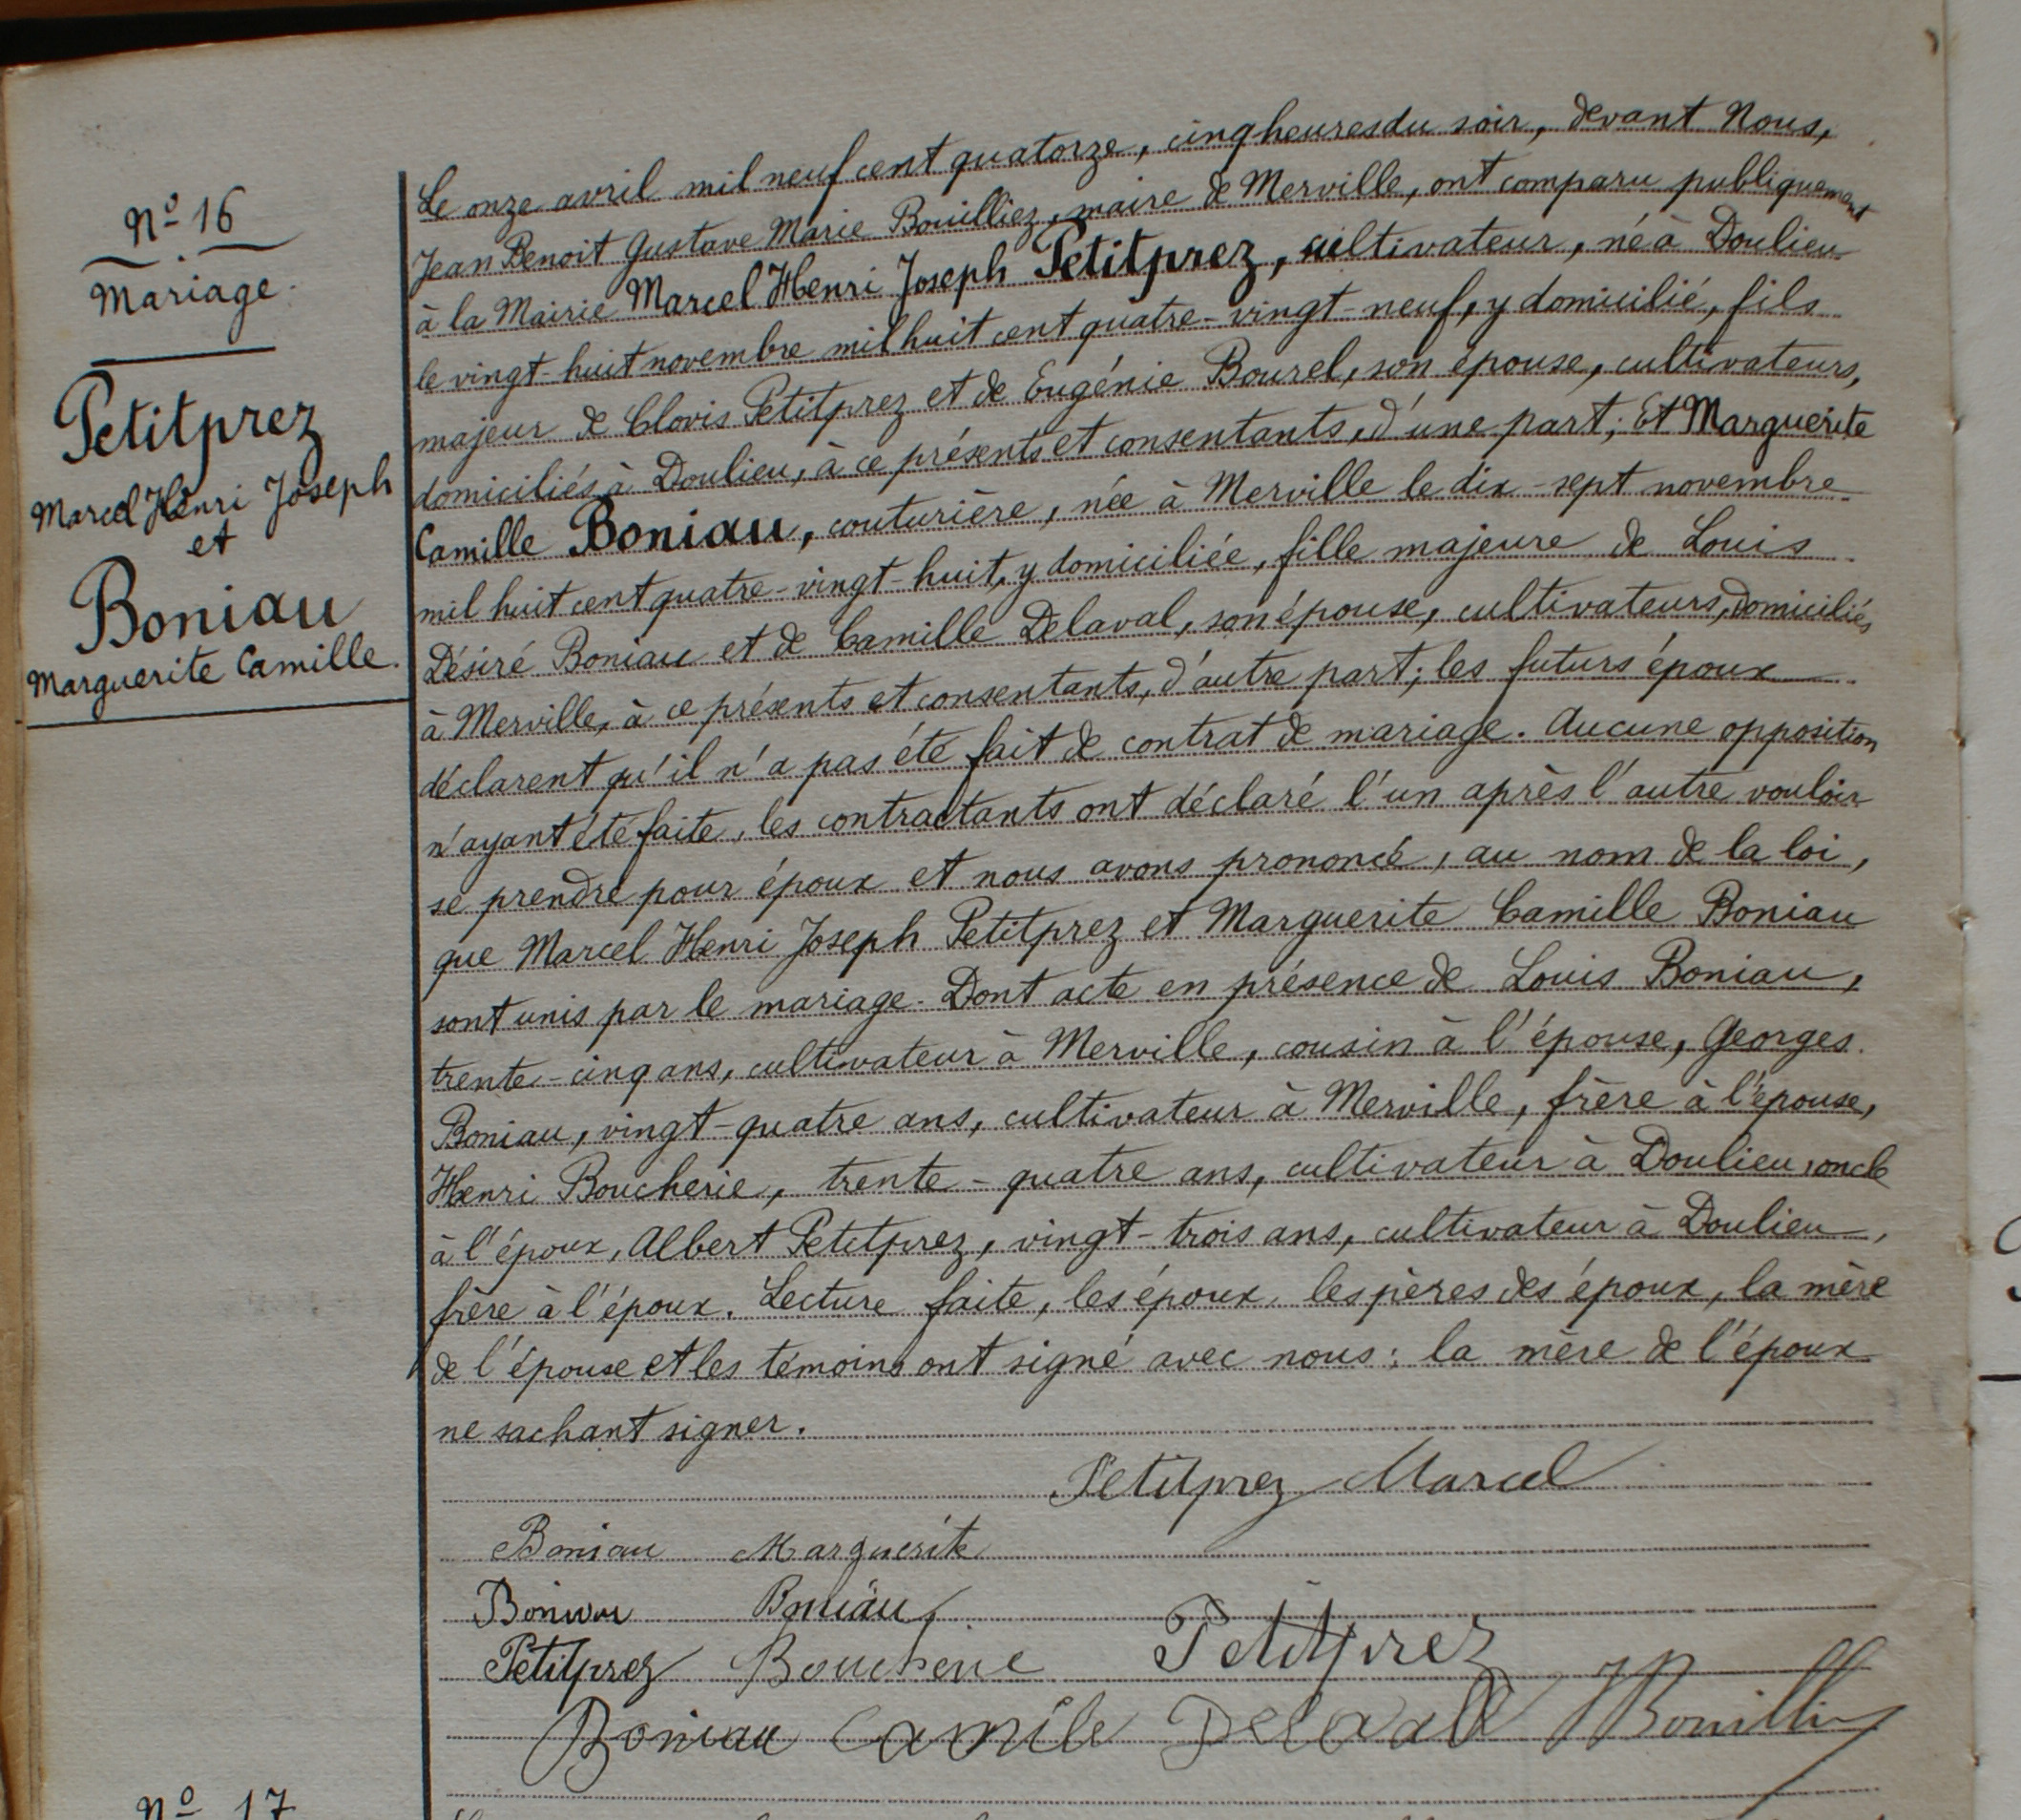 Nº 16
Mariage.
Petitprez
Marcel Henri Joseph
et
Boniau
Marguerite Camille.
Le onze avril mil neuf cent quatorze, cinq heures du soir, devant Nous,
Jean Benoit Gustave Marie Bouilliez, maire de Merville, ont comparu publiquement
à la Mairie Marcel Henri Joseph Petitprez, cultivateur, né à Doulieu
le vingt-huit novembre mil huit cent quatre-vingt-neuf, y domicilié, fils
majeur de Clovis Petitprez et de Eugénie Bourel, son épouse, cultivateurs,
domiciliés à Doulieu, à ce présents et consentants, d'une part; Et Marguerite
Camille Boniau, couturière, née à Merville le dix-sept novembre
mil huit cent quatre-vingt-huit, y domiciliée, fille majeure de Louis
Désiré Boniau et de Camille Delaval, son épouse, cultivateurs, domiciliés
à Merville, à ce présents et consentants, d'autre part; les futurs époux
déclarent qu'il n'a pas été fait de contrat de mariage. Aucune opposition
n'ayant été faite, les contractants ont déclaré l'un après l'autre vouloir
se prendre pour époux et nous avons prononcé, au nom de la loi,
que Marcel Henri Joseph Petitprez et Marguerite Camille Boniau
sont unis par le mariage. Dont acte en présence de Louis Boniau,
trente-cinq ans, cultivateur à Merville, cousin à l'épouse, Georges
Boniau, vingt-quatre ans, cultivateur à Merville, frère à l'épouse,
Henri Boucherie, trente-quatre ans, cultivateur à Doulieu, oncle
à l'époux, Albert Petitprez, vingt-trois ans, cultivateur à Doulieu,
frère à l'époux. Lecture faite, les époux, les pères des époux, la mère
de l'épouse et les témoins ont signé avec nous: la mère de l'époux
ne sachant signer.
Petitprez Marcel
Boniau Marguerite
Boniau Boniau
Petitprez Boucherie Petitprez
Boniau Camile Delavall JBouilliez
Nº 17